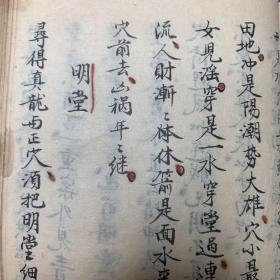 田地冲是陽潮势大雄穴小最
女見滛穿是一水穿堂過連
流人財漸〻休休箭是面水來
穴前去凶禍年〻継
明堂
尋得真龍與正穴須把明堂細